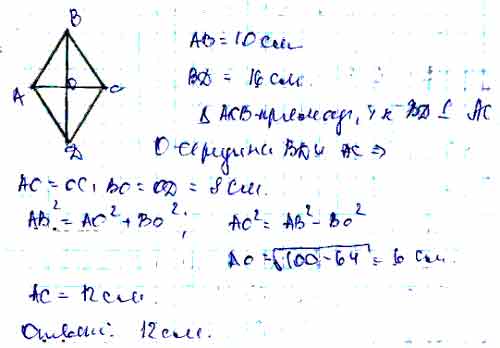 B
A O C
D
AB = 10 см
BD = 16 см.
Δ ACB - прямоуг, т к BD ⊥ AC
O - середина BD и AC ⇒
AO = OC, BO = OD = 8 см.
AB² = AO² + BO²; AO² = AB² - BO²
AO = √100 - 64 = 6 см.
AC = 12 см.
Ответ: 12 см.